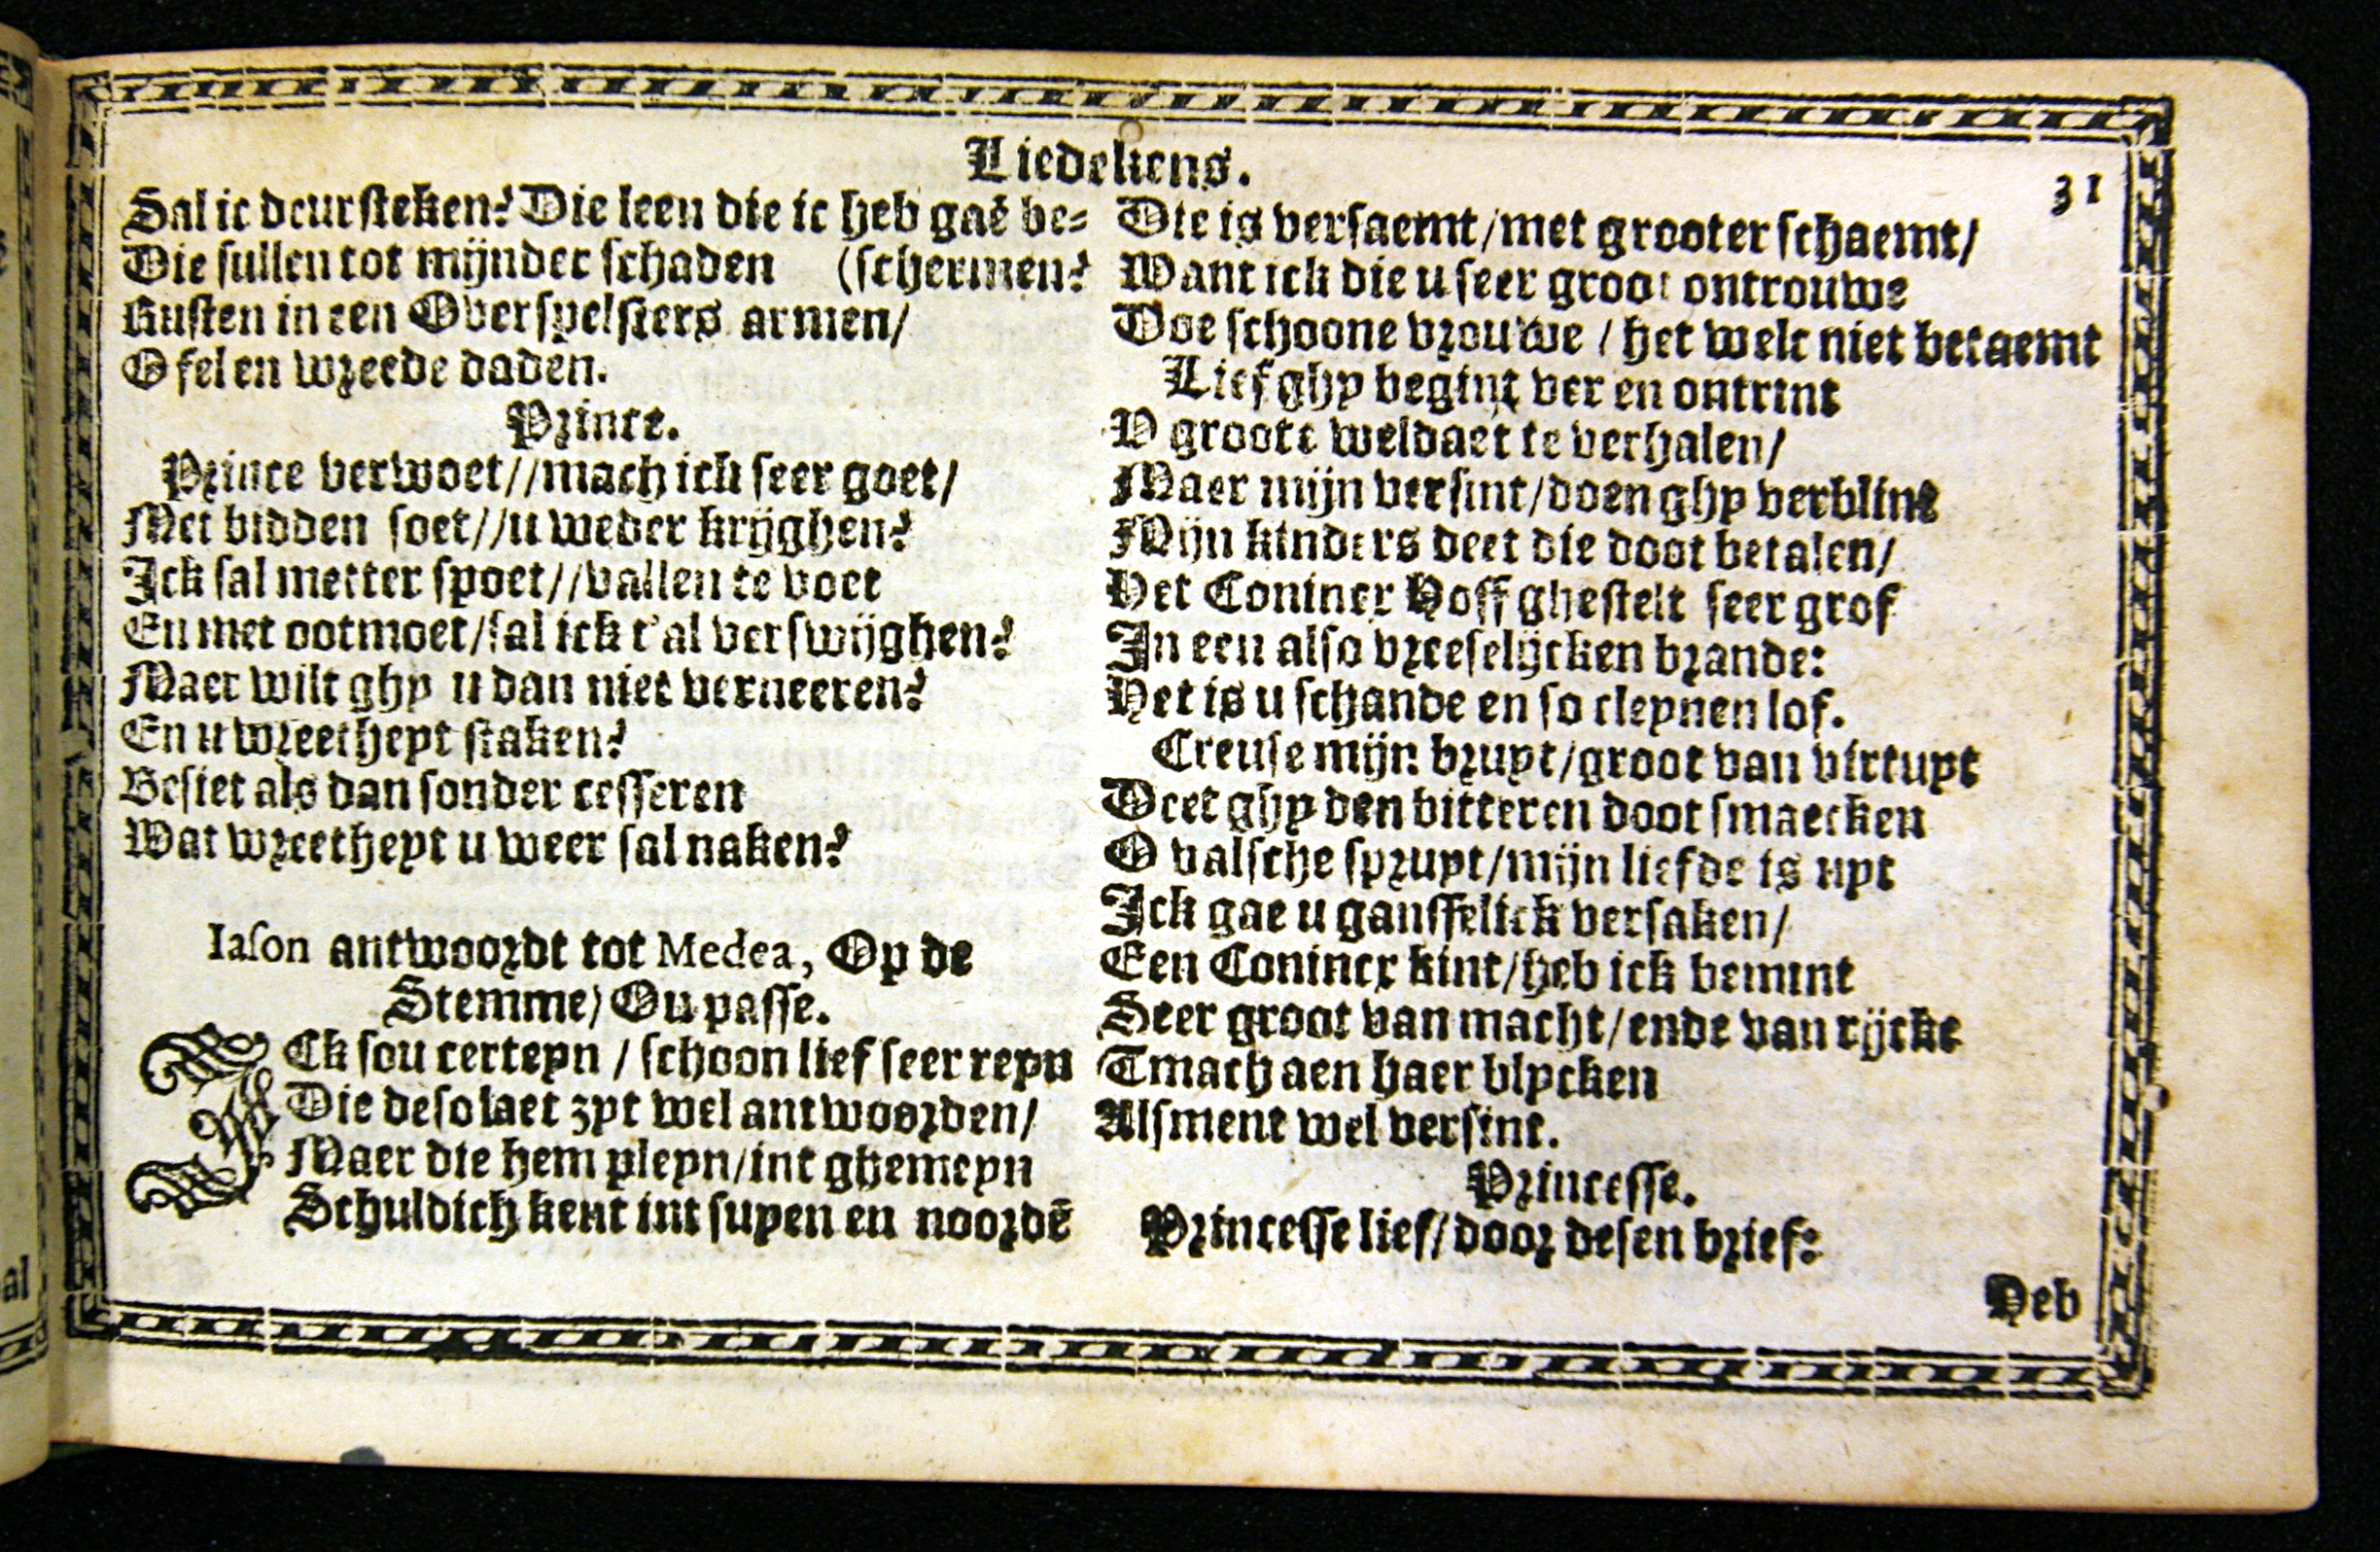 Liedekens.
31
Sal ic deur steken? Die leen die ic heb gaē be-
Die sullen tot mijnder schaden (schermen?
Rusten in een Overspelsters armen/
O fel en wreede daden.
Prince.
Prince verwoet//mach ick seer goet/
Met bidden soet//u weder krijghen?
Ick sal metter spoet//vallen te voet
En met ootmoet/sal ick t'al verswijghen?
Maer wilt ghy u dan niet verneeren?
En u wreetheyt staken?
Besiet als dan sonder cesseren
Wat wreetheyt u weer sal naken?
Iason antwoordt tot Medea, Op de
Stemme/ Ou passe.
ICk sou certeyn / schoon lief seer reyn
Die desolaet zyt wel antwoorden/
Maer die hem pleyn/int ghemeyn
Schuldich kent int suyen en noordē
Die is versaemt/met grooter schaemt/
Want ick die u seer groot ontrouwe
Doe schoone vrouwe / het welc niet betaemt
Lief ghy begint ver en ontrint
V groote weldaet te verhalen/
Maer mijn versint/doen ghy verblint
Mijn kinders deet die doot betalen/
Het Coninc Hoff ghestelt seer grof
In een also vreeselijcken brande:
Het is u schande en so cleynen lof.
Creuse mijn bruyt/groot van virtuyt
Deet ghy den bitteren doot smaecken
O valsche spruyt/mijn liefde is uyt
Ick gae u gansselick versaken/
Een Coninck kint/heb ick bemint
Seer groot van macht/ende van rijcke
Tmach aen haer blycken
Alsment wel versint.
Princesse.
Princesse lief/door desen brief:
Heb